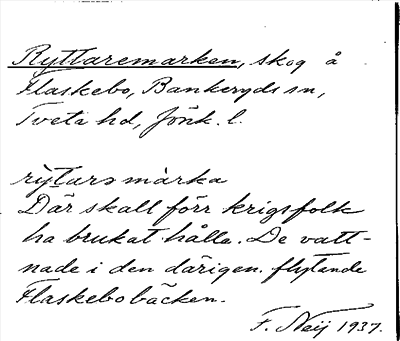 Ryttaremarken, skog å
Flaskebo, Bankeryds sn,
Tveta hd, Jönk. l.
rỳt̲arə màrka
Där skall förr krigsfolk
ha brukat hålla. De vatt-
nade i den därigen. flytande
Flaskebobäcken.
F. Neij 1937.